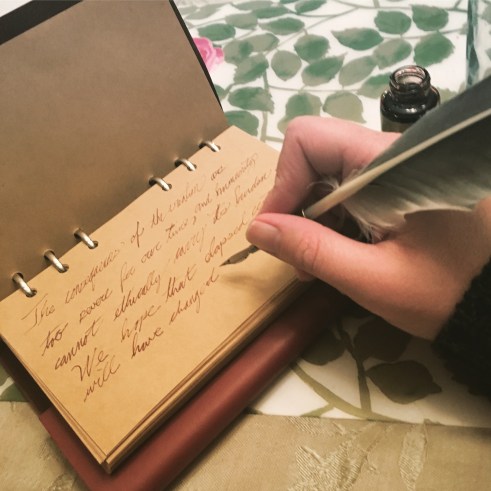 The consequences of the wester are
too severe for our lives and humanity
cannot ethically carry this burden
We hope that elapsed
will have changed